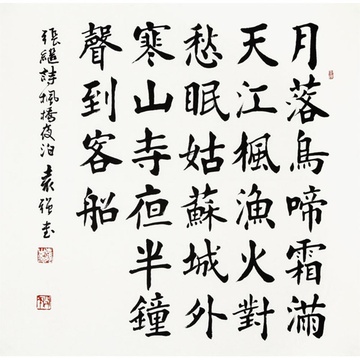 月落烏啼霜滿
天江楓漁火對
愁眠姑蘇城外
寒山寺夜半鐘
聲到客船
張繼詩楓橋夜泊 袁強書